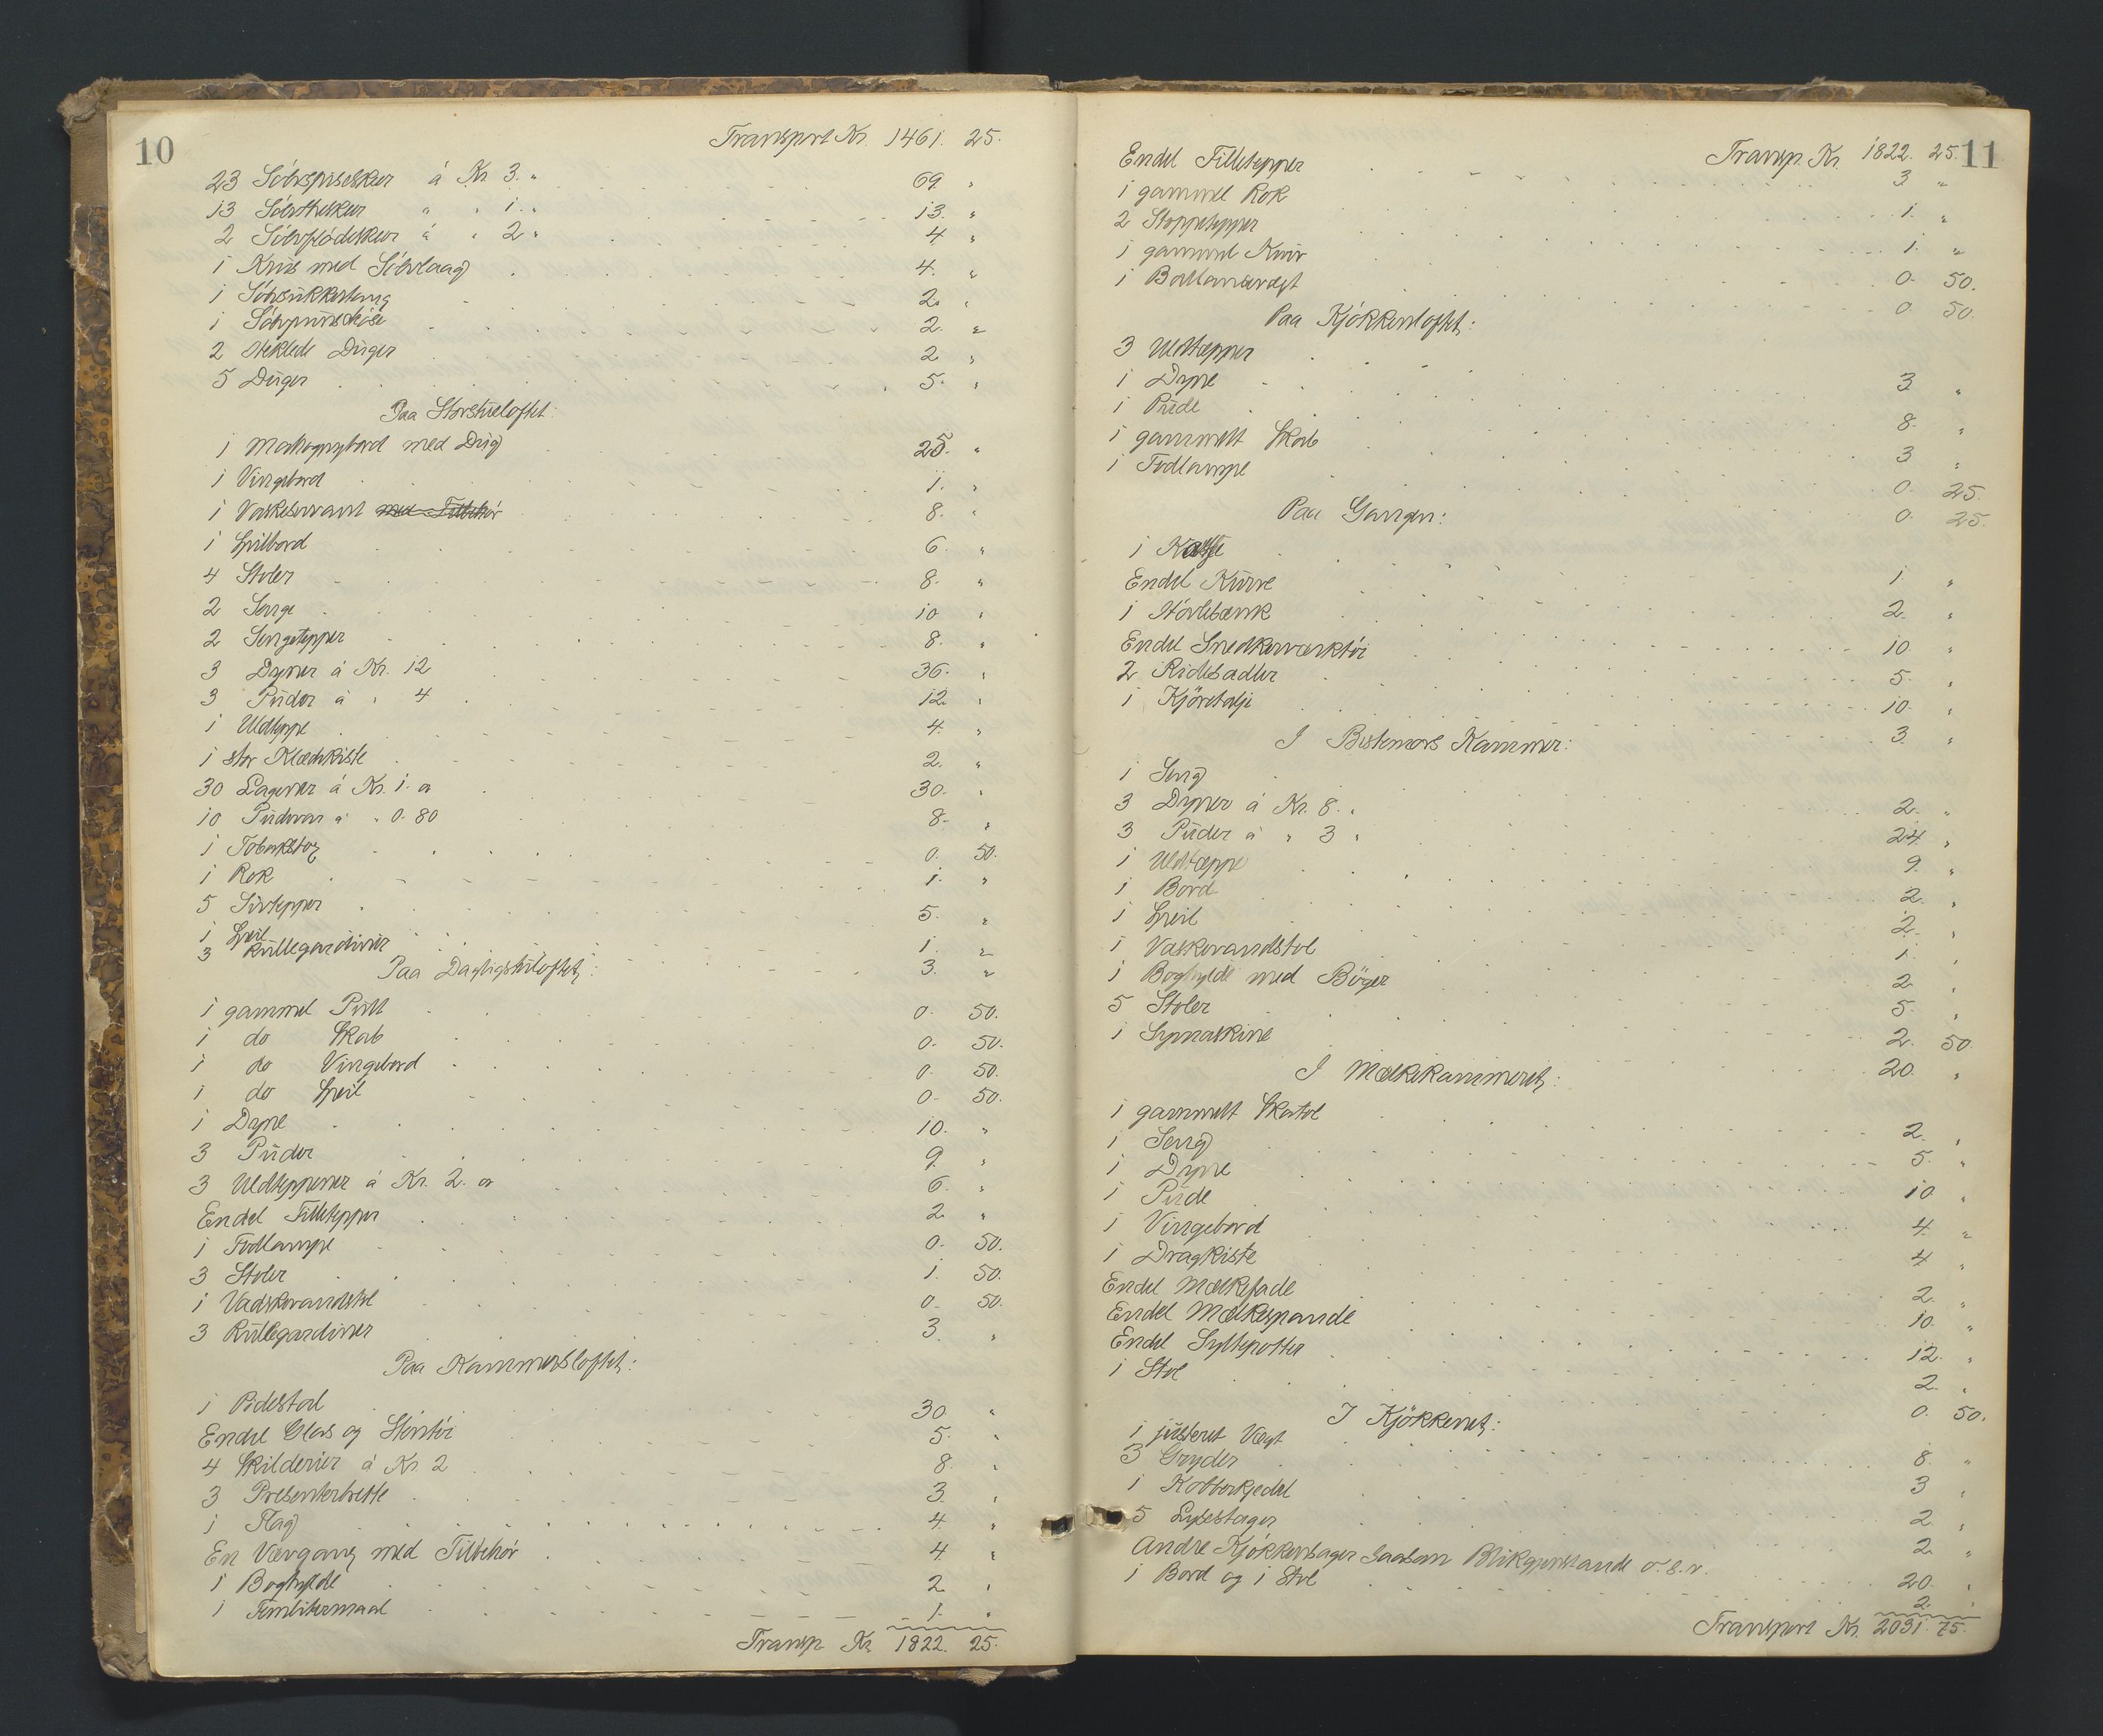 10
Transport Kr. 1461. 25.
23 Sölvspiseskeer á Kr 3. " 69 "
13 Sölvtheskeer " " 1. " 13. "
2 Sölvflödeskeer á " 2 " 4 "
1 Krus med Sölvlaag 4. "
1 Sölvsukkertang 2. "
1 Sölvpunscheöse 2. "
2 Heklede Duger 2 "
5 Duger 5. "
Paa Storstueloftet:
1 Mahognybord med Dug 25. "
1 Vingebord 1. "
1 Vaskeservant med Tilbehör 8. "
1 Speilbord 6. "
4 Stoler 8. "
2 Senge 10 "
2 Sengetepper 8. "
3 Dyner á Kr. 12 36. "
3 Puder á " 4 12. "
1 Uldteppe 4. "
1 stor Klædekiste 2. "
30 Lagener á Kr. 1. " 30. "
10 Pudevar á " 0.80 8. "
1 Tobakstog 0. 50.
1 Rok 1. "
5 Sivtepper 5. "
1 Speil 1. "
3 Rullegardiner 3. "
Paa Dagligstuloftet:
1 gammel Pult 0. 50.
1 do Skab 0. 50.
1 do Vingebord 0. 50.
1 do Speil 0. 50.
1 Dyne 10. "
3 Puder 9. "
3 Uldtepperer á Kr. 2. " 6. "
Endel Filletepper 2. "
1 Fodlampe 0. 50.
3 Stoler 1. 50.
1 Vadskevandstol 0. 50.
3 Rullegardiner 3. "
Paa Kammersloftet:
1 Pidestal 30. "
Endel Glas og Stentöi 5. "
4 Skilderier á Kr. 2 8. "
3 Presenterbrette 3. "
1 Flag 4. "
En Vævgang med Tilbehör 4 "
1 Boghylde 2 "
1 Femlitermaal 1. "
Transp. Kr. 1822. 25.
11
Transp. Kr. 1822. 25.
Endel Filletepper 3 "
1 gammel Rok 1. "
2 Stoppetepper 1. "
1 gammel Kurv 0. 50.
1 Ballansevegt 0. 50.
Paa Kjökkenloftet:
3 Uldtæpper 3 "
1 Dyne 8. "
1 Pude 3 "
1 gammelt Skab 0. 25.
1 Fodlampe 0. 25.
Paa Gangen:
1 Kasse 1. "
Endel Kurve 2. "
1 Hövlebænk 10. "
Endel Snedkerværktöi 5. "
2 Ridesadler 10. "
1 Kjöretalje 3. "
I Bestemors Kammer:
1 Seng 2. "
3 Dyner á Kr. 8. " 24. "
3 Puder á " 3 " 9. "
1 Uldtæppe 2. "
1 Bord 2. "
1 Speil 1. "
1 Vaskevandstol 2. "
1 Boghylde med Böger 5. "
5 Stoler 2. 50
1 Symaskine 20. "
I Melkekammeret:
1 gammelt Skatol 2. "
1 Seng 5. "
1 Dyne 10 "
1 Pude 4. "
1 Vingebord 4 "
1 Dragkiste 2. "
Endel Melkefade 10. "
Endel Melkespande 12. "
Endel Syltepotter 2. "
1 Stol 0. 50.
I Kjökkenet:
1 justeret Vegt 8. "
3 Gryder 3 "
1 Kobberkjedel 2. "
5 Lysestager 2. "
Andre Kjökkensager saasom Blikgjenstande o.s.v. 20. "
1 Bord og 1 Stol 2. "
Transport Kr. 2031. 75.